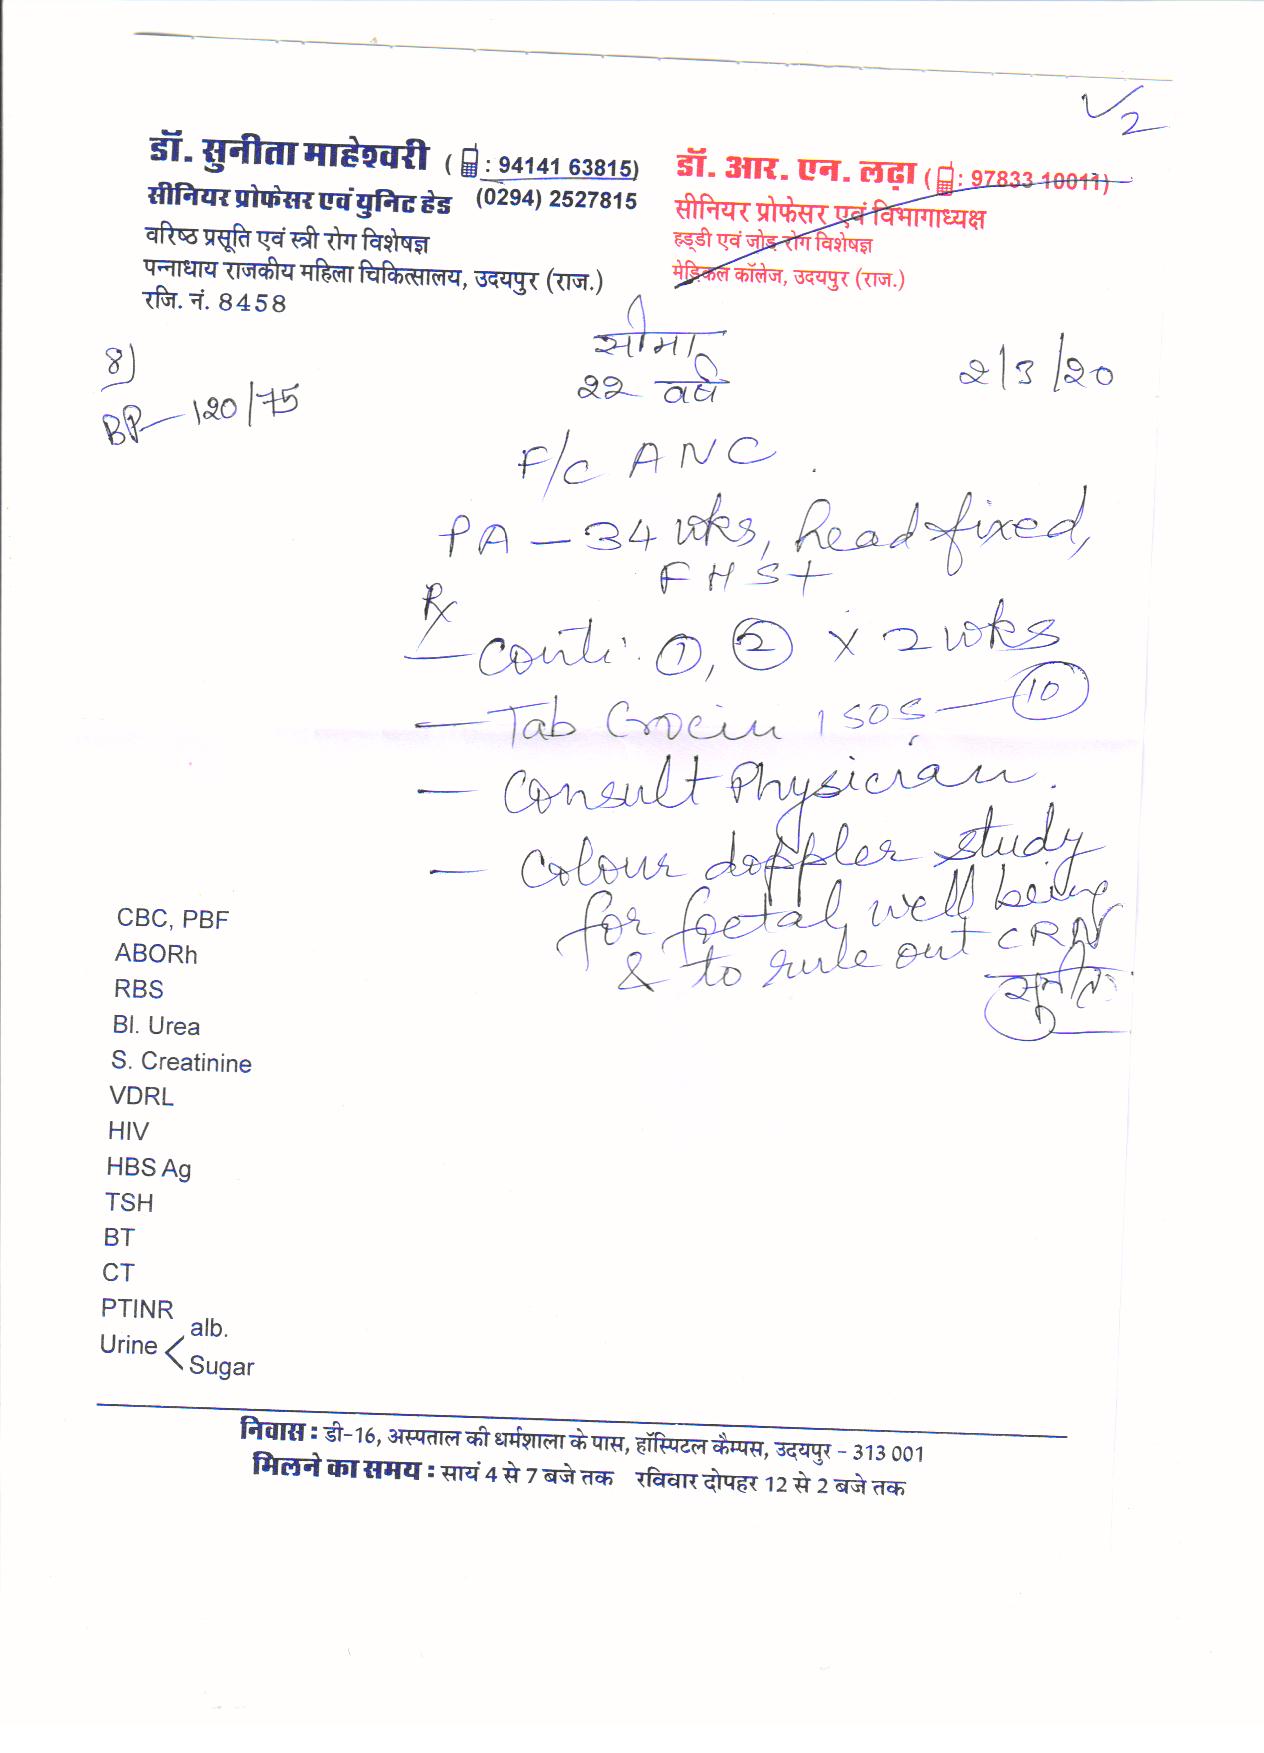 √2
डॉ. सुनीता माहेश्वरी ( : 94141 63815)
सीनियर प्रोफेसर एवं युनिट हेड (0294) 2527815
वरिष्ठ प्रसूति एवं स्त्री रोग विशेषज्ञ
पन्नाधाय राजकीय महिला चिकित्सालय, उदयपुर (राज.)
रजि. नं. 8458
डॉ. आर. एन. लढ़ा ( : 97833 10011)
सीनियर प्रोफेसर एवं विभागाध्यक्ष
हड्डी एवं जोड़ रोग विशेषज्ञ
मेडिकल कॉलेज, उदयपुर (राज.)
8)
सीमा
2/3/20
22 वर्ष
BP - 120/75
F/C ANC.
PA - 34 wks, head fixed,
FHS+
Rx
- Conti. 1, 2 x 2 wks
- Tab Crocin 1 SOS - 10
- Consult Physician.
- Colour doppler study
for foetal well being
& to rule out CRN
सुनीता
CBC, PBF
ABORh
RBS
Bl. Urea
S. Creatinine
VDRL
HIV
HBS Ag
TSH
BT
CT
PTINR
Urine < alb.
Sugar
निवास : डी-16, अस्पताल की धर्मशाला के पास, हॉस्पिटल कैम्पस, उदयपुर - 313 001
मिलने का समय : सायं 4 से 7 बजे तक रविवार दोपहर 12 से 2 बजे तक